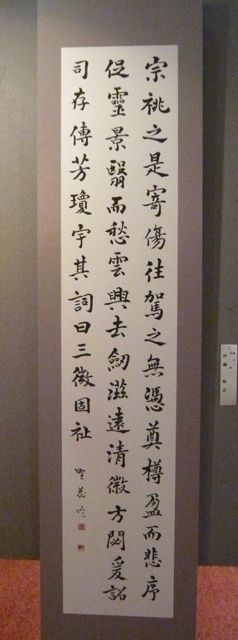 宗祧之是寄傷往駕之無憑奠樽盈而悲序
促靈景翳而愁雲興去劒滋遠清徽方閟爰詔
司存傳芳瓊宇其詞曰三徽固祉